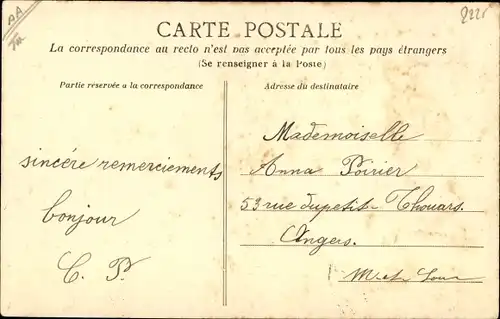 AA
CARTE POSTALE
La correspondance au recto n'est pas acceptée par tous les pays étrangers
(Se renseigner à la Poste)
Partie réservée a la correspondance
Adresse du destinataire
sincére remerciements
bonjour
C. P.
Mademoiselle
Anna Poirier
53 rue du petit-Thouars.
Angers.
M-et-Loire